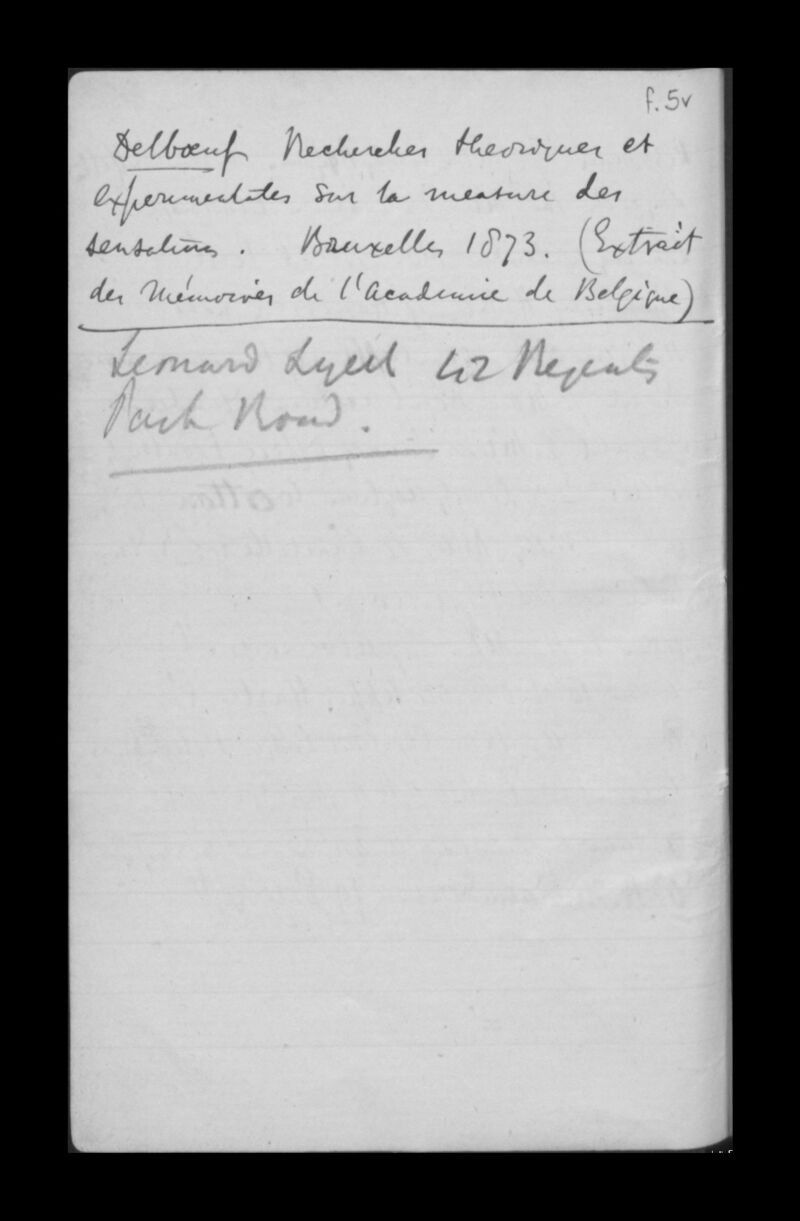 f. 5v
Delbœuf Recherches theoriques et
experimentales sur la measure des
sensations. Bruxelles 1873. (Extrait
des Mémoires de l'Academie de Belgique)
Leonard Lyell 42 Regents
Park Road.